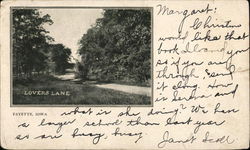 Margaret:
Christine
would like that
book I loaned you
so if you are
through "send
it along. How
is Bertha and
LOVERS LANE
FAYETTE, IOWA
what is she doing? We have
a larger school than last year
so am busy, busy.
Janet Scott